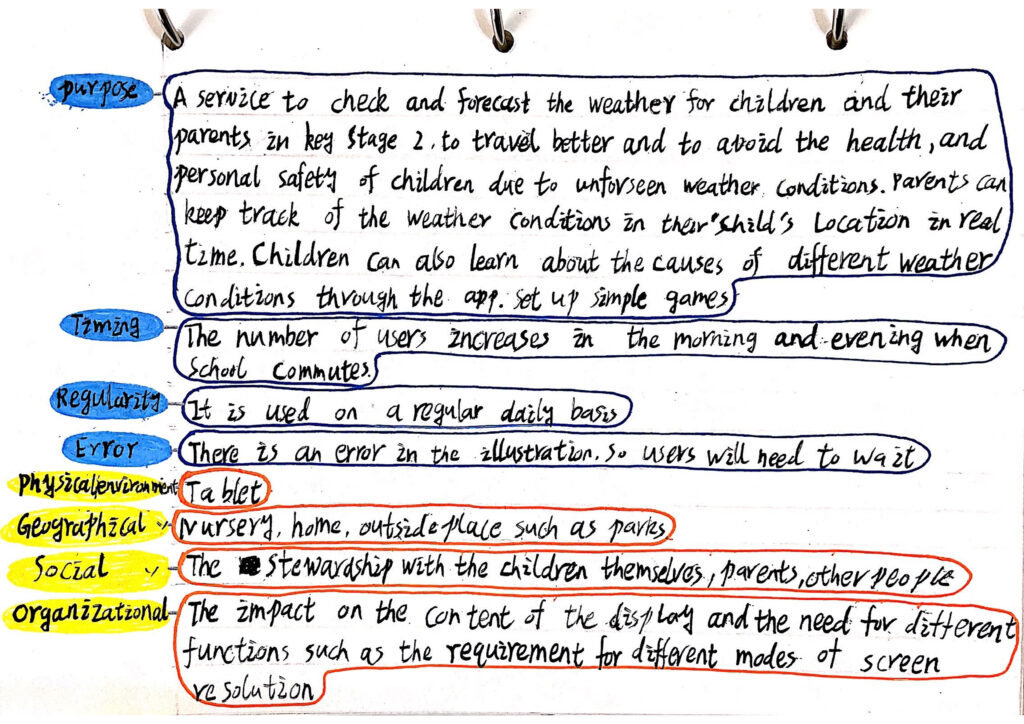 purpose
A service to check and forecast the weather for children and their
parents in key stage 2. to travel better and to avoid the health, and
personal safety of children due to unforseen weather conditions. parents can
keep track of the weather conditions in their child's Location in real
time. Children can also learn about the causes of different weather
conditions through the app. set up simple games
Timing
The number of users increases in the morning and evening when
School commutes.
Regularity
It is used on a regular daily basis
Error
There is an error in the illustration. so users will need to wait
physical/environment
Tablet
Geographical
Nursery, home, outside place such as parks
Social
The stewardship with the children themselves, parents, other people
organizational
The impact on the content of the display and the need for different
functions such as the requirement for different modes of screen
resolution